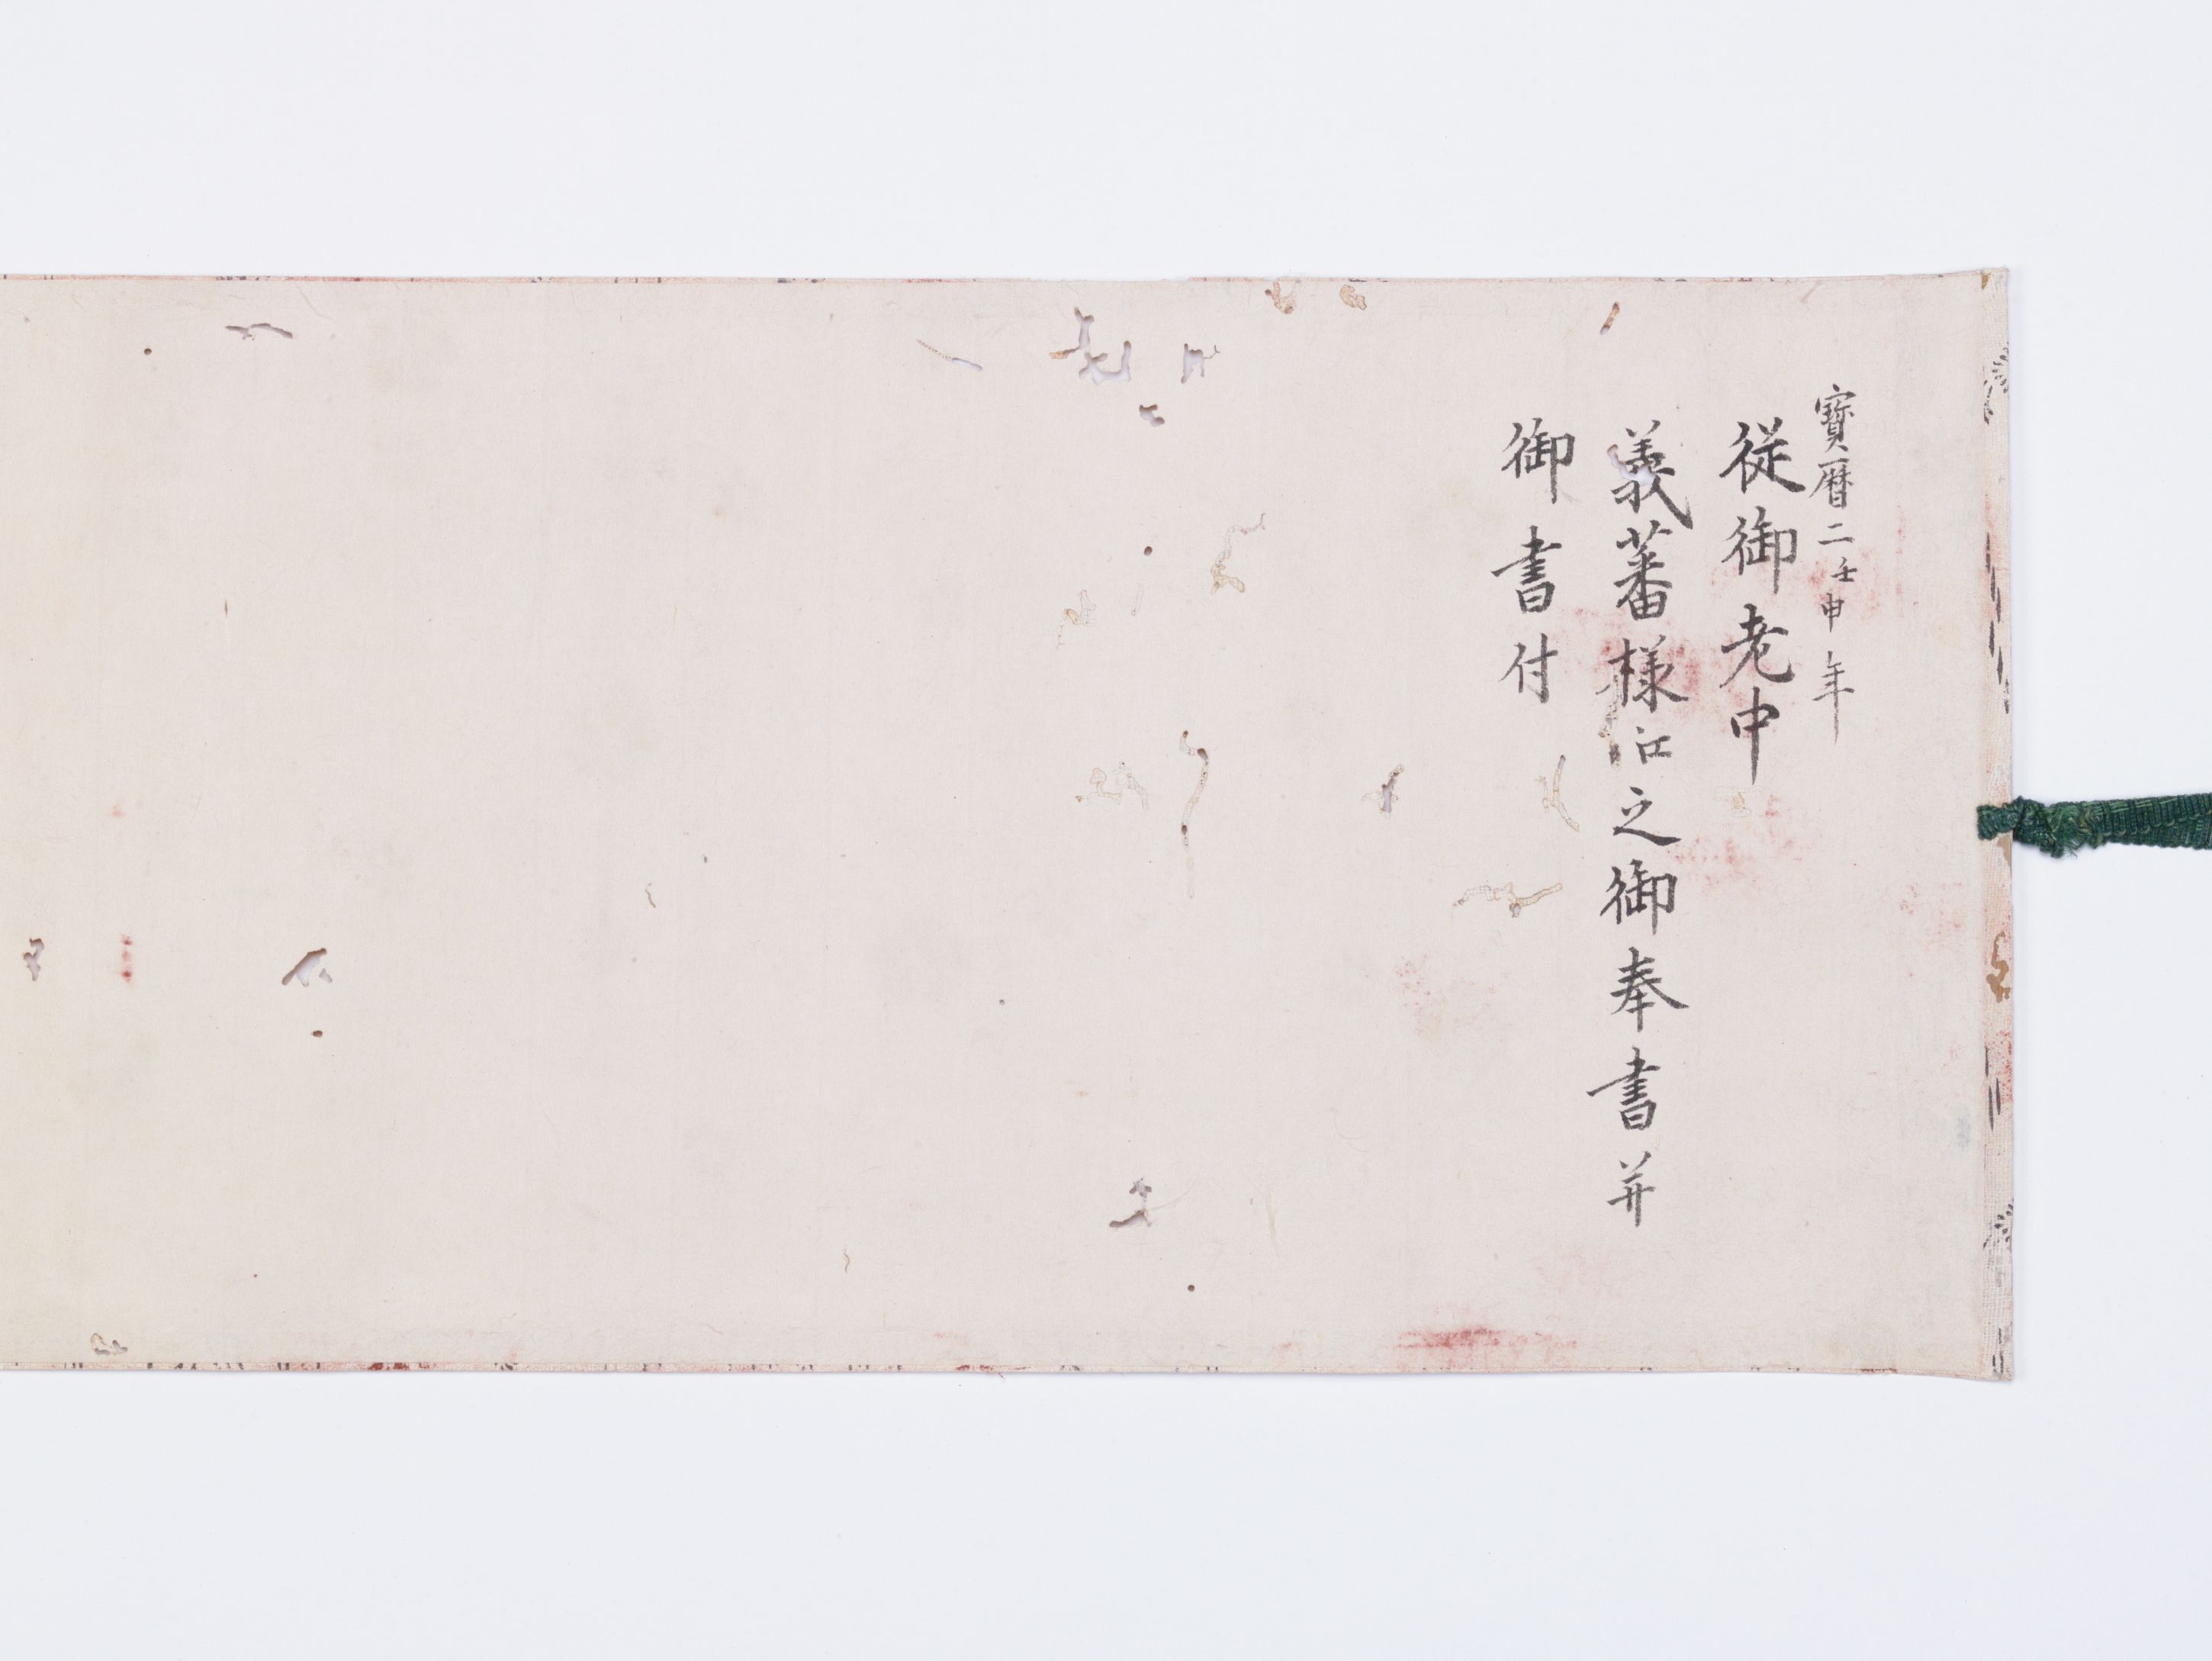 寳暦二壬申年
従御老中
義蕃様江之御奉書并
御書付